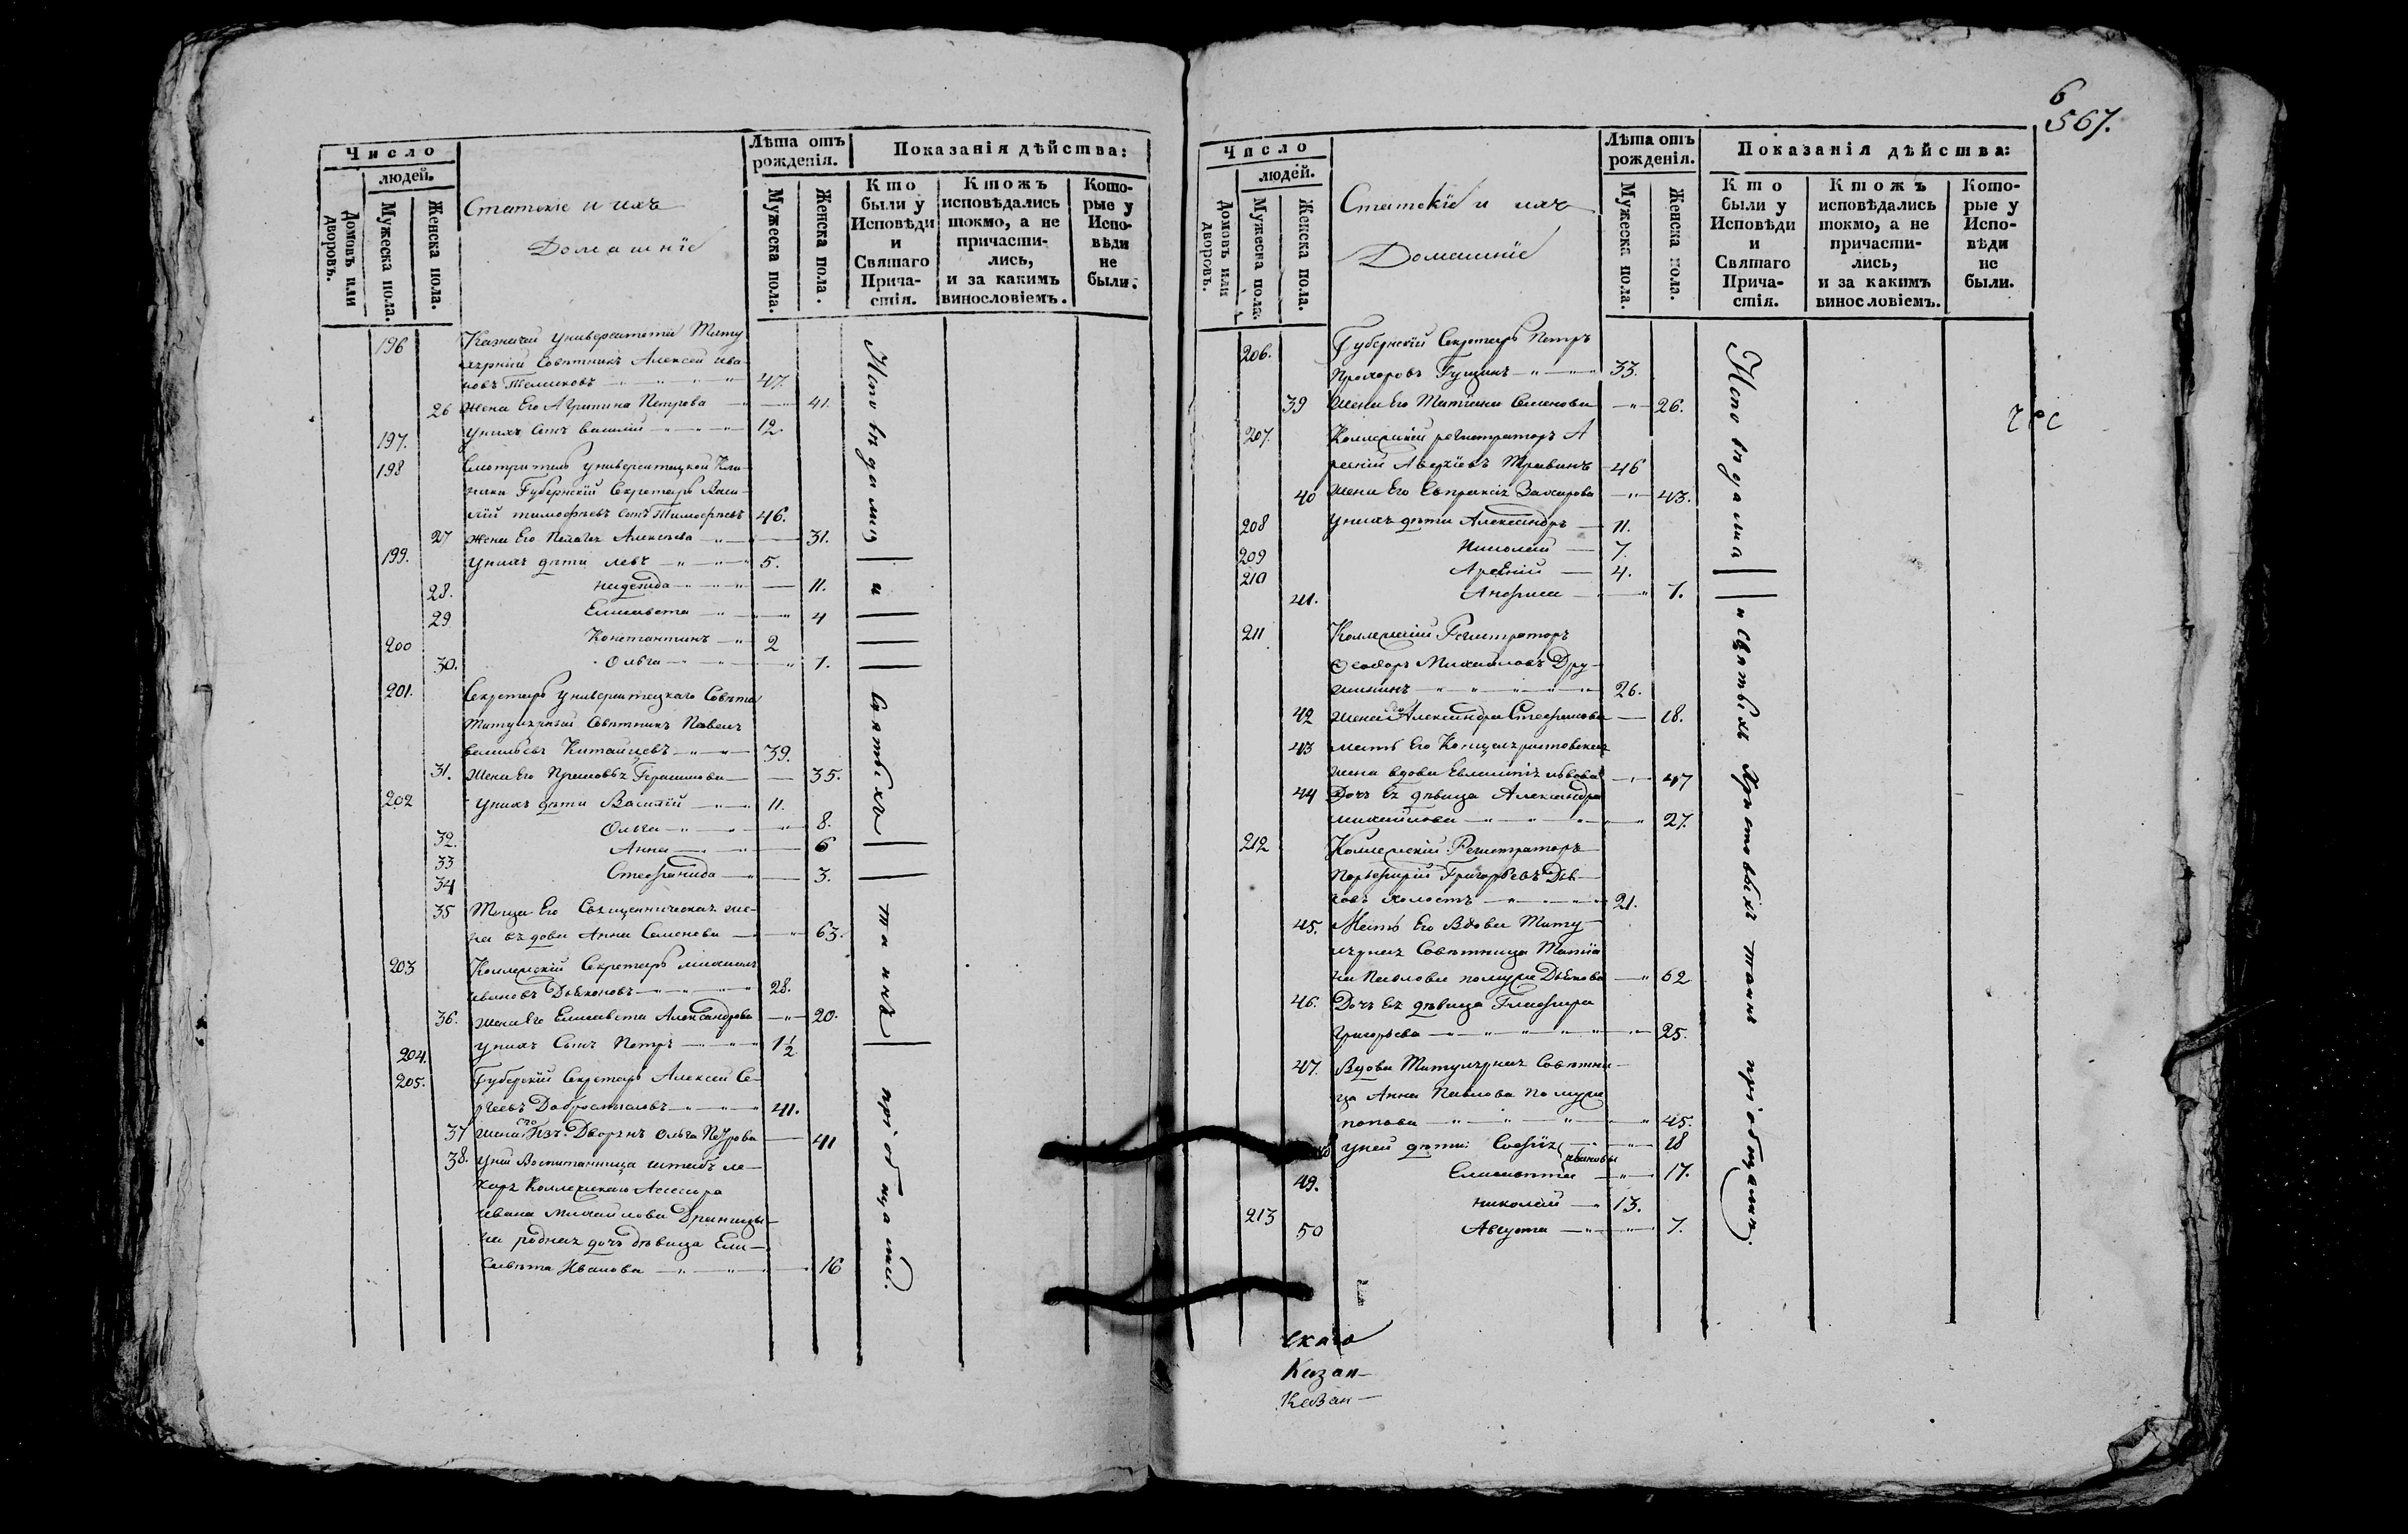 Число
людей.
Домовъ или дворовъ.
Мужеска пола.
Женска пола.
Статскіе и ихъ
Домашніе
Лѣта отъ рожденія.
Мужеска пола.
Женска пола.
Показанія дѣйства:
Кто были у Исповѣди и Святаго Причастія.
Ктожъ исповѣдались токмо, а не причастились, и за какимъ винословіемъ.
Которые у Исповѣди не были.
196 Казначей университета Титу
лярній Совѣтникъ Алексей Ива
новъ 47.
26 Жена Его Агрипина Петрова 41.
197. у нихъ сынъ Василій 12.
198 Смотритель университецкой Кли
ники Губернскій Секретарь Васи
лій Тимофѣевъ сынъ Тимофѣевъ 46.
27 Жена Его Пелагея Алексѣева 31.
199. у нихъ дѣти Левъ 5.
28. Надежда 11.
29 Елисавета 4
200 Константинъ 2
30. Ольга 1.
201. Секретарь университецкаго Совѣта
Титулярный Совѣтникъ Павелъ
Васильевъ Китайцевъ 39.
31. Жена Его Прасковья Герасимова 35.
202 у нихъ дѣти Василій 11.
32. Ольга 8.
33 Анна 6
34 Стефанида 3.
35 Теща Его Священническая же-
на вдова Анна Семенова 63.
203 Коллежскій Секретарь Михаилъ
Ивановъ Дьяконовъ 28.
36. Жена Его Елисавета Александрова 20.
204. у нихъ Сынъ Петръ 1½
205. Губернскій Секретарь Алексей Се-
ргеевъ 41.
37 Жена его Изъ Дворянъ Ольга Петрова 41
38. у ней Воспитанница штабъ ле-
каря Коллежскаго Асессора
Ивана Михайлова
на родная дочь дѣвица Ели-
савета Иванова 16
Исповѣдались и Святыхъ таинъ пріобщались.
6
567.
Число
людей.
Домовъ или дворовъ.
Мужеска пола.
Женска пола.
Статскіе и ихъ
Домашніе
Лѣта отъ рожденія.
Мужеска пола.
Женска пола.
Показанія дѣйства:
Кто были у Исповѣди и Святаго Причастія.
Ктожъ исповѣдались токмо, а не причастились, и за какимъ винословіемъ.
Которые у Исповѣди не были.
206. Губернскій Секретарь Петръ
Прохоровъ Гущинъ 33.
39 Жена Его Татіана Семенова 26.
207. Коллежскій регистраторъ А
рсеній Аверкіевъ Травинъ 46
40 Жена Его Евпраксія Захарова 43.
208 у нихъ дѣти Александръ 11.
209 Николай 7.
210 Арсеній 4.
41. Анфиса 1.
211 Коллежскій Регистраторъ
Ѳеодоръ Михайловъ Дру-
жининъ 26.
42 Жена его Александра Стефанова 18.
43 Мать Его Канцеляристовская
жена вдова Евлампія Львова 47
44 Дочь Ея дѣвица Александра
Михайлова 27.
212 Коллежскій Регистраторъ
Порфирій Григорьевъ Дья-
ковъ холостъ 21.
45. Мать Его Вдова Титу-
лярная Совѣтница Татіа
на Павлова по мужѣ Дьякова 62
46. Дочь Ея дѣвица Глафира
Григорьева 25.
47. Вдова Титулярная Совѣтни-
ца Анна Павлова по мужѣ
Попова 45.
48 у ней дѣти: Софія Ивановы 18
49. Елисавета 17.
213 Николай 13.
50 Августа 7.
Исповѣдались и Святыхъ Христовыхъ таинъ пріобщались.
скаго
Казан-
Казан-